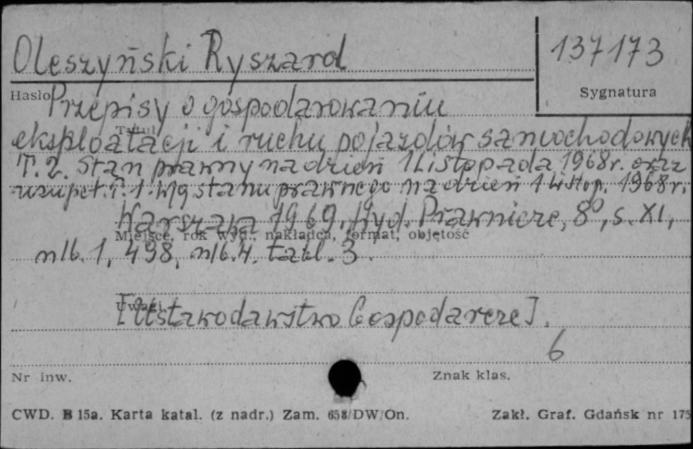 Oleszyński Ryszard
137173
Hasło
Sygnatura
Przepisy o gospodarowaniu
eksploatacji i ruchu pojazdów samochodowych
Tytuł
T. 2. Stan prawny na dzień 1 listopada 1968 r. oraz
uzupeł. T. 1. wg stanu prawnego na dzień 1 listop. 1968 r.
Warszawa 1969, Wyd. Prawnicze, 8°, s. XI,
Miejsce, rok wyd., nakładca, format, objętość
nlb. 1, 498, nlb. 4. tabl. 3.
Uwagi
[Ustawodawstwo Gospodarcze].
6
Nr inw.
Znak klas.
CWD. B 15a. Karta katal. (z nadr.) Zam. 658/DW/On.
Zakł. Graf. Gdańsk nr 175